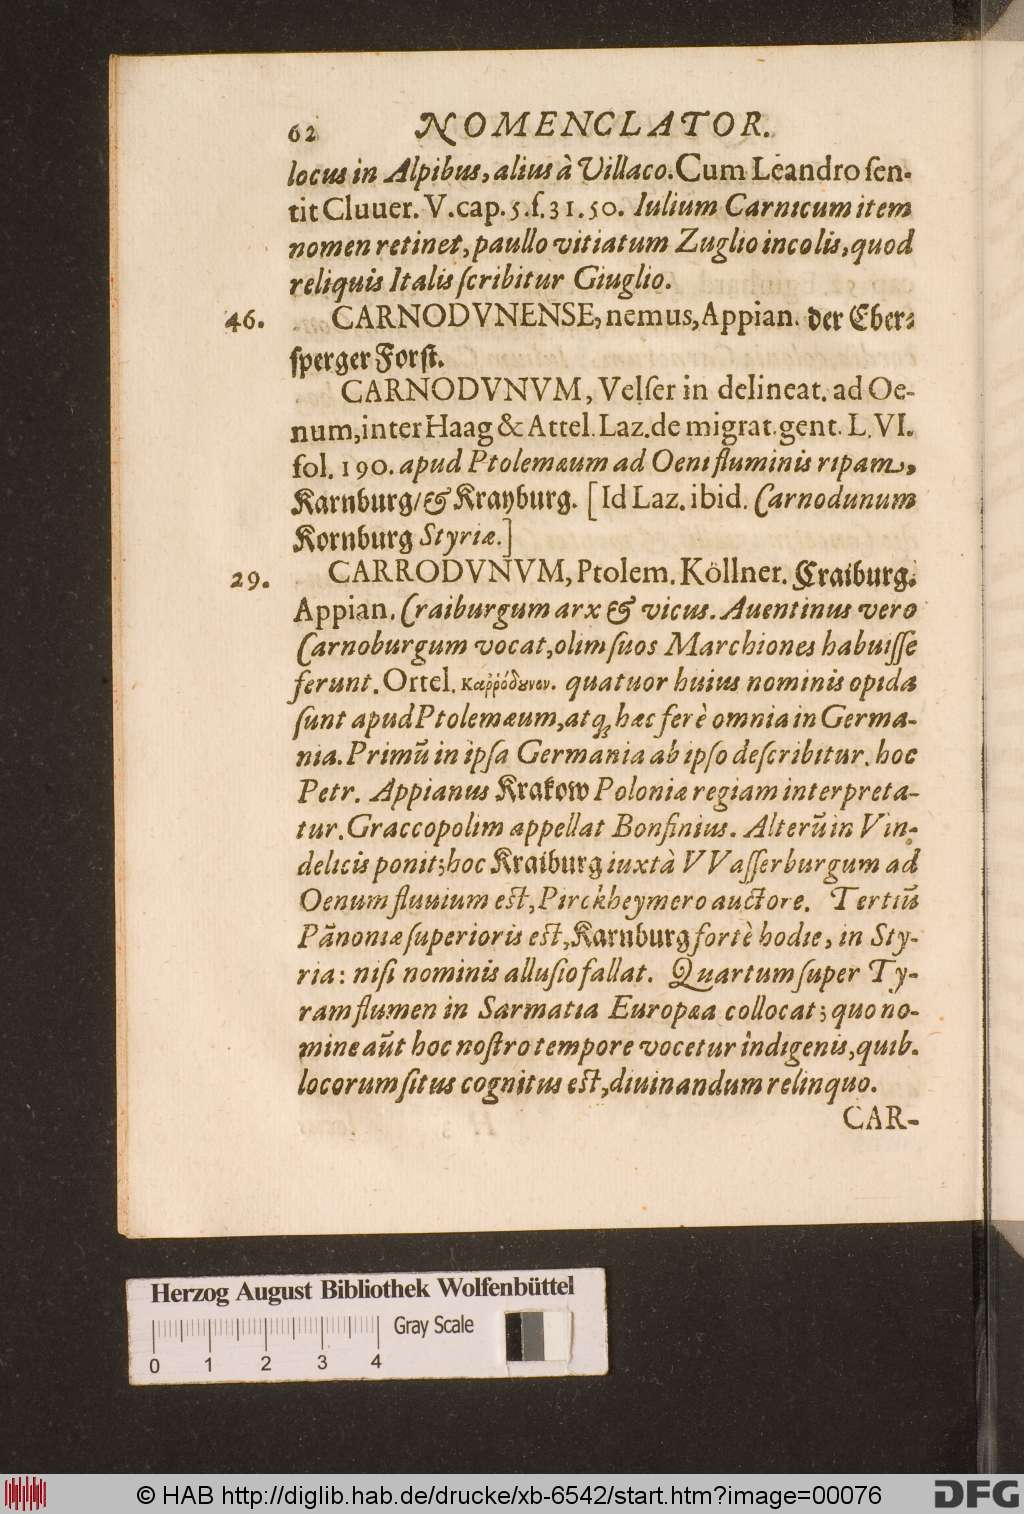 62 NOMENCLATOR.
locus in Alpibus, alius à Villaco. Cum Leandro ſen-
tit Cluuer. V. cap. 5. ſ. 31. 50. Iulium Carnicum item
nomen retinet, paullo vitiatum Zuglio incolis, quod
reliquis Italis ſcribitur Giuglio.
46. CARNODVNENSE, nemus, Appian. der Eber-
ſperger Forſt.
CARNODVNVM, Velſer in delineat. ad Oe-
num, inter Haag & Attel. Laz. de migrat. gent. L. VI.
fol. 190. apud Ptolemæum ad Oeni fluminis ripam,
Karnburg/ & Krayburg. [Id Laz. ibid. Carnodunum
Kornburg Styriæ.]
29. CARRODVNVM, Ptolem. Köllner. Craiburg.
Appian. Craiburgum arx & vicus. Auentinus vero
Carnoburgum vocat, olim ſuos Marchiones habuiſſe
ferunt. Ortel. Καῤῥόδȣνον. quatuor huius nominis opida
ſunt apud Ptolemæum, atq; hæc ferè omnia in Germa-
nia. Primũ in ipſa Germania ab ipſo deſcribitur. hoc
Petr. Appianus Krakow Poloniæ regiam interpreta-
tur. Graccopolim appellat Bonfinius. Alterũ in Vin-
delicis ponit; hoc Kraiburg iuxtà VVaſſerburgum ad
Oenum fluuium eſt, Pirckheymero auctore. Tertiũ
Pãnoniæ ſuperioris eſt, Karnburg fortè hodie, in Sty-
ria: niſi nominis alluſio fallat. Quartum ſuper Ty-
ram flumen in Sarmatia Europæa collocat; quo no-
mine aũt hoc noſtro tempore vocetur indigenis, quib.
locorum ſitus cognitus eſt, diuinandum relinquo.
CAR-
Herzog August Bibliothek Wolfenbüttel
Gray Scale
0 1 2 3 4
© HAB http://diglib.hab.de/drucke/xb-6542/start.htm?image=00076
DFG